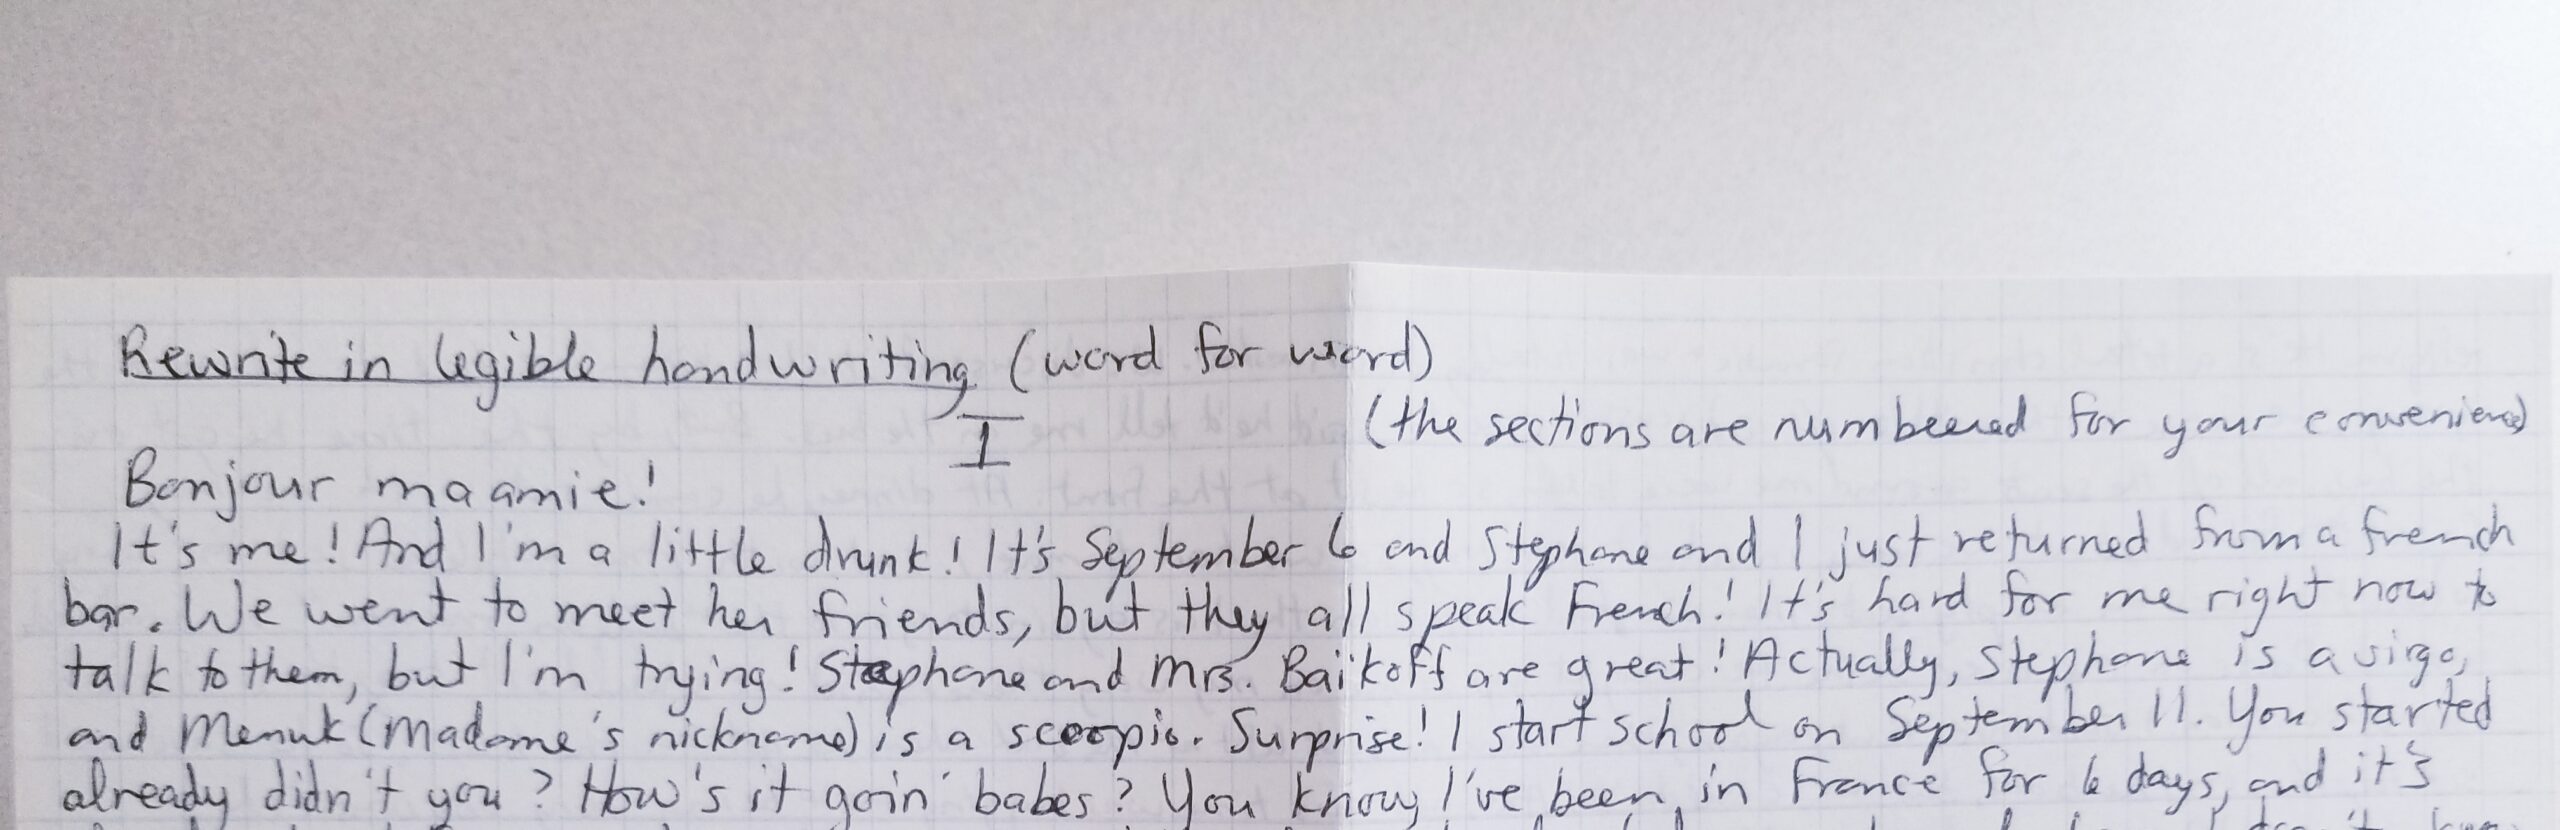 Rewrite in legible handwriting (word for word)
(the sections are numbeered for your convenience)
I
Bonjour ma amie!
It's me! And I'm a little drunk! It's September 6 and Stephane and I just returned from a french
bar. We went to meet her friends, but they all speak French! It's hard for me right now to
talk to them, but I'm trying! Stephane and Mrs. Baikoff are great! Actually, Stephane is a virgo,
and Menuk (Madame's nickname) is a scorpio. Surprise! I start school on September 11. You started
already didn't you? How's it goin' babes? You know I've been in France for 6 days, and it's